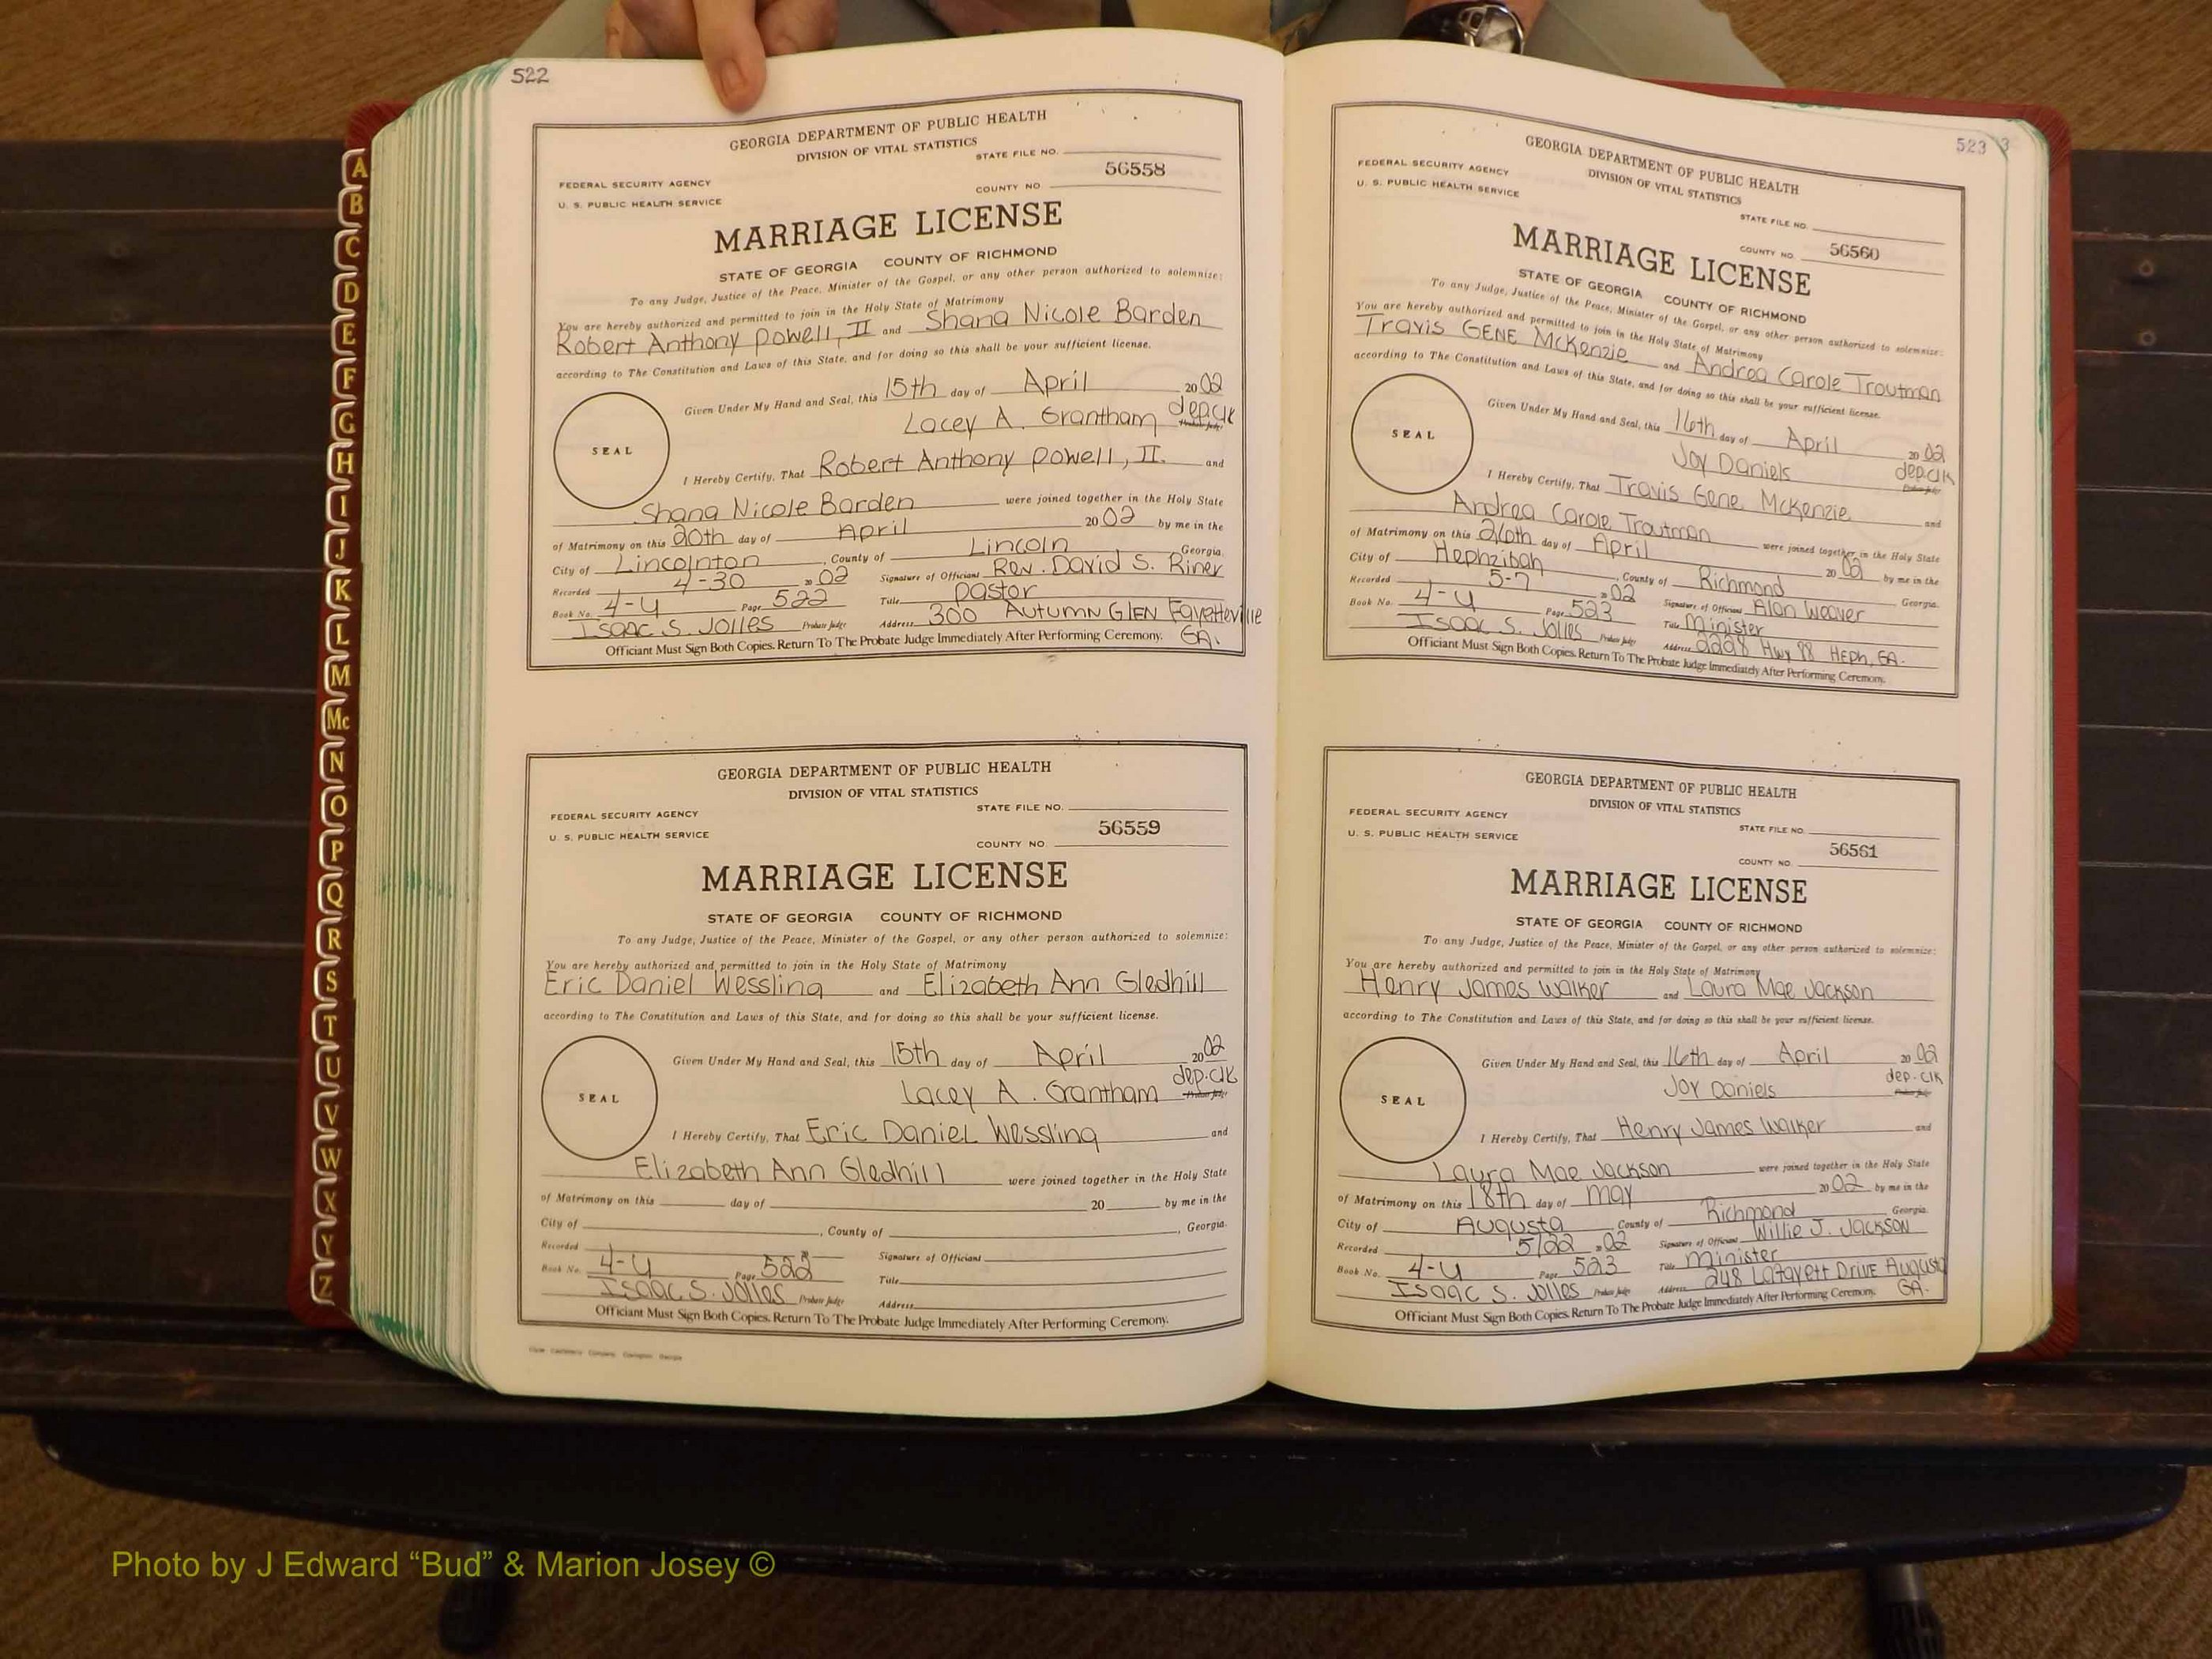 522
GEORGIA DEPARTMENT OF PUBLIC HEALTH
DIVISION OF VITAL STATISTICS
STATE FILE NO.
FEDERAL SECURITY AGENCY
U. S. PUBLIC HEALTH SERVICE
COUNTY NO. 56558
MARRIAGE LICENSE
STATE OF GEORGIA COUNTY OF RICHMOND
To any Judge, Justice of the Peace, Minister of the Gospel, or any other person authorized to solemnize:
You are hereby authorized and permitted to join in the Holy State of Matrimony
Robert Anthony Powell, II and Shana Nicole Barden
according to The Constitution and Laws of this State, and for doing so this shall be your sufficient license.
Given Under My Hand and Seal, this 15th day of April 2002
Lacey A. Grantham dep.clk
Probate Judge
SEAL
I Hereby Certify, That Robert Anthony Powell, II. and
Shana Nicole Barden were joined together in the Holy State
of Matrimony on this 20th day of April 2002 by me in the
City of Lincolnton, County of Lincoln Georgia.
Recorded 4-30 2002 Signature of Officiant Rev. David S. Riner
Book No. 4-U Page 522 Title Pastor
Isaac S. Jolles Probate Judge Address 300 AUTUMN GLEN Fayetteville GA.
Officiant Must Sign Both Copies. Return To The Probate Judge Immediately After Performing Ceremony.
GEORGIA DEPARTMENT OF PUBLIC HEALTH
DIVISION OF VITAL STATISTICS
STATE FILE NO.
FEDERAL SECURITY AGENCY
U. S. PUBLIC HEALTH SERVICE
COUNTY NO. 56559
MARRIAGE LICENSE
STATE OF GEORGIA COUNTY OF RICHMOND
To any Judge, Justice of the Peace, Minister of the Gospel, or any other person authorized to solemnize:
You are hereby authorized and permitted to join in the Holy State of Matrimony
Eric Daniel Wessling and Elizabeth Ann Gledhill
according to The Constitution and Laws of this State, and for doing so this shall be your sufficient license.
Given Under My Hand and Seal, this 15th day of April 2002
Lacey A. Grantham dep.clk
Probate Judge
SEAL
I Hereby Certify, That Eric Daniel Wessling and
Elizabeth Ann Gledhill were joined together in the Holy State
of Matrimony on this day of 20 by me in the
City of , County of , Georgia.
Recorded Signature of Officiant
Book No. 4-U Page 522 Title
Isaac S. Jolles Probate Judge Address
Officiant Must Sign Both Copies. Return To The Probate Judge Immediately After Performing Ceremony.
523 3
GEORGIA DEPARTMENT OF PUBLIC HEALTH
DIVISION OF VITAL STATISTICS
FEDERAL SECURITY AGENCY
U. S. PUBLIC HEALTH SERVICE
STATE FILE NO.
COUNTY NO. 56560
MARRIAGE LICENSE
STATE OF GEORGIA COUNTY OF RICHMOND
To any Judge, Justice of the Peace, Minister of the Gospel, or any other person authorized to solemnize:
You are hereby authorized and permitted to join in the Holy State of Matrimony
Travis GENE McKenzie and Andrea Carole Troutman
according to The Constitution and Laws of this State, and for doing so this shall be your sufficient license.
Given Under My Hand and Seal, this 16th day of April 2002
Joy Daniels dep.clk
Probate Judge
SEAL
I Hereby Certify, That Travis Gene McKenzie and
Andrea Carole Troutman were joined together in the Holy State
of Matrimony on this 26th day of April 2002 by me in the
City of Hephzibah, County of Richmond Georgia.
Recorded 5-7 2002 Signature of Officiant Alan Weaver
Book No. 4-U Page 523 Title Minister
Isaac S. Jolles Probate Judge Address 2228 Hwy 88 HEPh, GA.
Officiant Must Sign Both Copies. Return To The Probate Judge Immediately After Performing Ceremony.
GEORGIA DEPARTMENT OF PUBLIC HEALTH
DIVISION OF VITAL STATISTICS
FEDERAL SECURITY AGENCY
U. S. PUBLIC HEALTH SERVICE
STATE FILE NO.
COUNTY NO. 56561
MARRIAGE LICENSE
STATE OF GEORGIA COUNTY OF RICHMOND
To any Judge, Justice of the Peace, Minister of the Gospel, or any other person authorized to solemnize:
You are hereby authorized and permitted to join in the Holy State of Matrimony
Henry James Walker and Laura Mae Jackson
according to The Constitution and Laws of this State, and for doing so this shall be your sufficient license.
Given Under My Hand and Seal, this 16th day of April 2002
Joy Daniels dep.clk
Probate Judge
SEAL
I Hereby Certify, That Henry James Walker and
Laura Mae Jackson were joined together in the Holy State
of Matrimony on this 18th day of May 2002 by me in the
City of Augusta County of Richmond Georgia.
Recorded 5/22 2002 Signature of Officiant Willie J. Jackson
Book No. 4-U Page 523 Title Minister
Isaac S. Jolles Probate Judge Address 248 Lafayett Drive Augusta GA.
Officiant Must Sign Both Copies. Return To The Probate Judge Immediately After Performing Ceremony.
A
B
C
D
E
F
G
H
I
J
K
L
M
Mc
N
O
P
Q
R
S
T
U
V
W
X
Y
Z
Photo by J Edward “Bud” & Marion Josey ©